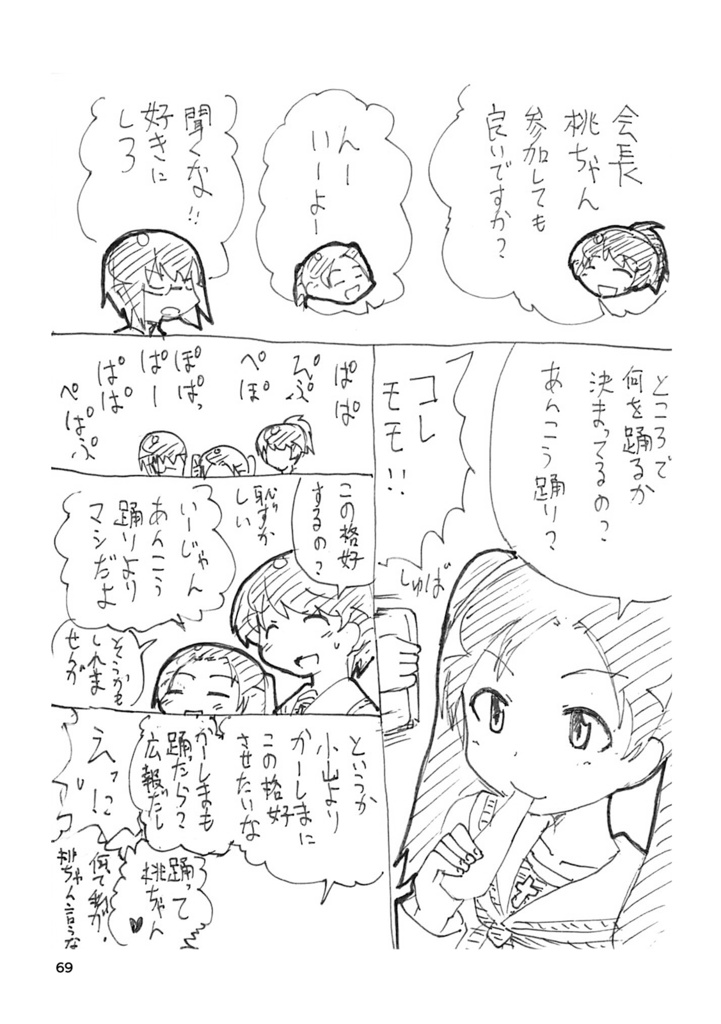 会長
桃ちゃん
参加しても
良いですか?
んー
いーよー
聞くな!!
好きに
しろ
ところで
何を踊るか
決まってるの?
あんこう踊り?
コレ
モモ!!
しゅば
ぱぱ
ぺぽ
ぽぱっ
ぱー
ぱぱ
ぺぱぷ
この格好
するの?
恥ずか
しい
いーじゃん
あんこう
踊りより
マシだよ
そうかも
しれま
せんが
というか
小山より
かーしまに
この格好
させたいな
かーしまも
踊だら?
広報だし
えっ!?
踊って
桃ちゃん
何で私が、
桃ちゃん言うな
69